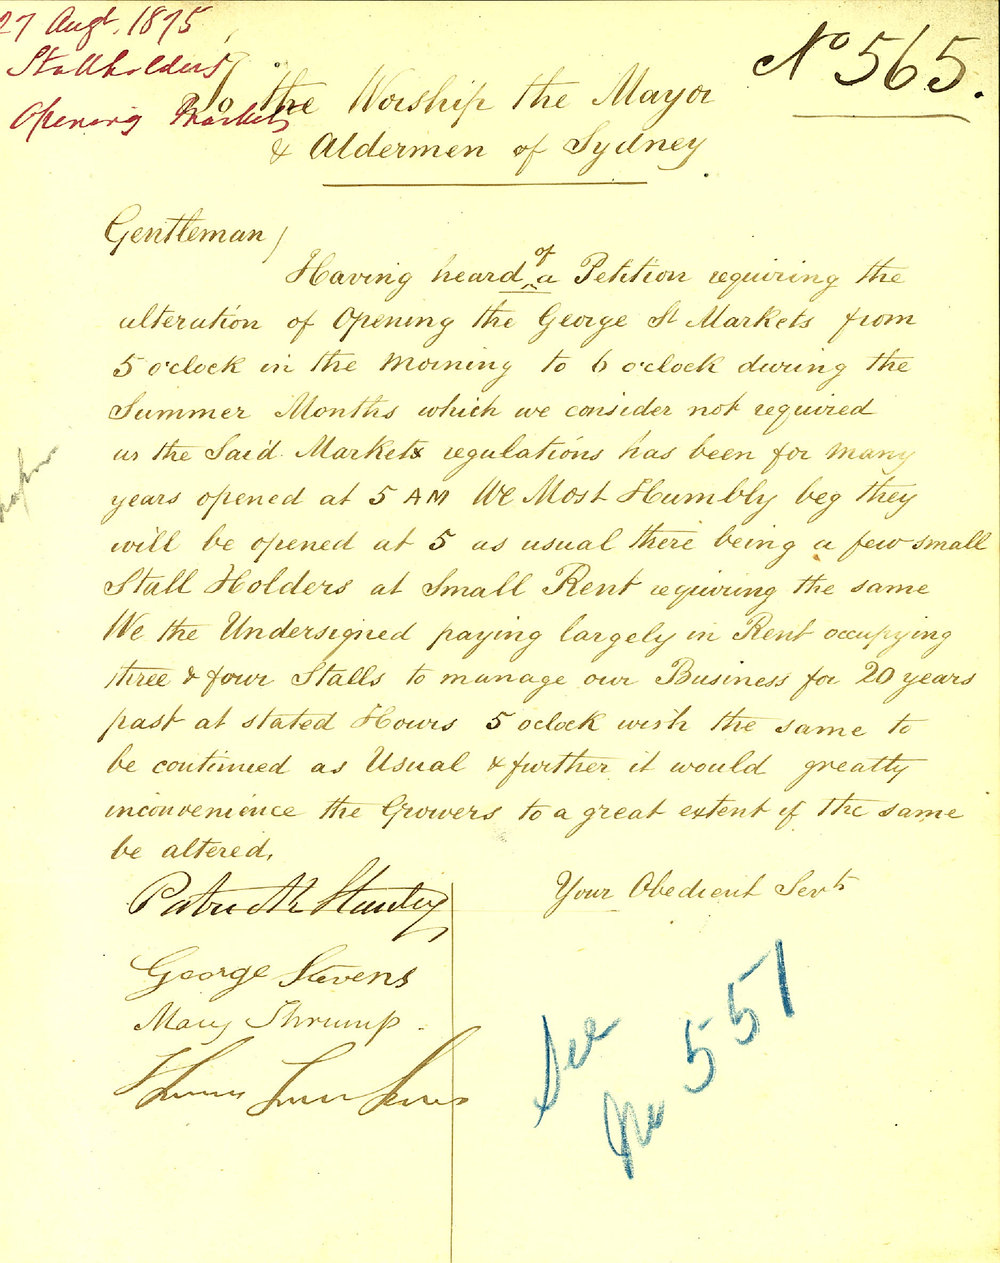 27 Augt. 1875
Stallholders
Opening Markets
No 565.
To the Worship the Mayor
& Aldermen of Sydney
Gentleman/
Having heard of a Petition requiring the
alteration of Opening the George St Markets from
5 o'clock in the Morning to 6 o'clock during the
Summer Months which we consider not required
as the Said Markets regulations has been for many
years opened at 5 AM We Most Humbly beg they
will be opened at 5 as usual there being a few small
Stall Holders at Small Rent requiring the same
We the Undersigned paying largely in Rent occupying
three & four Stalls to manage our Business for 20 years
past at stated Hours 5 oclock wish the same to
be continued as Usual & further it would greatly
inconvenience the Growers to a great extent if the same
be altered.
Your Obedient Servts
Patrick Stanley
George Stevens
Mary Thrump.
See
No 551